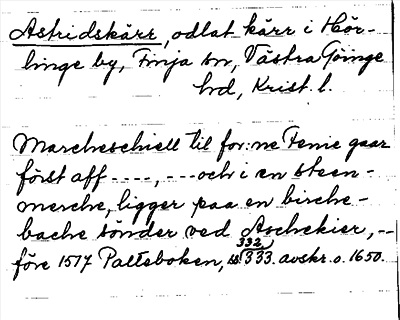 Astridskärr, odlat kärr i Hör-
linge by, Finja sn, Västra Göinge
hd, Krist. l.
Marcheschiell til for:ne Fenie gaar
först aff ----, --- och i en steen-
merche, ligger paa en birche-
bache sönder ved Aschekier, --
före 1517 Palteboken, s. 333. avskr. o. 1650.
332